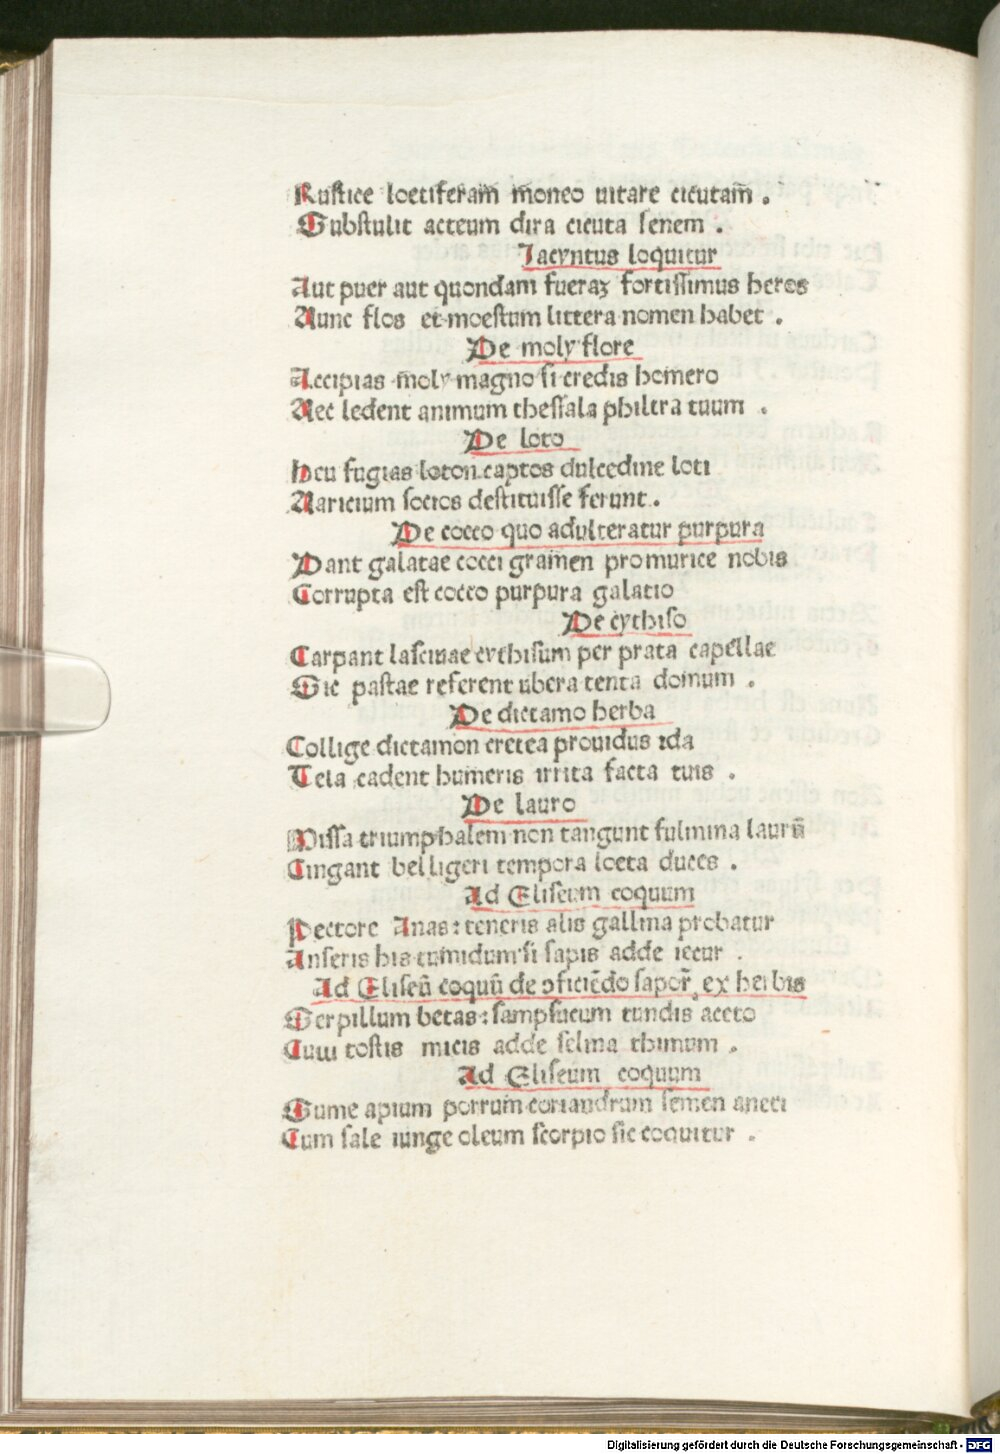 Rustice loetiferam̄ moneo uitare cicutam̄ .
Substulit acteum dira cicuta senem .
Jacyntus loquitur
Aut puer aut quondam fueraꝫ fortissimus heros
Nunc flos et moestum littera nomen habet .
De moly flore
Accipias m̄oly magno si credis homero
Nec ledent animum thessala philtra tuum .
De loto
Heu fugias loton captos dulcedine loti
Naricium socios destituisse ferunt .
De cocco quo adulteratur purpura
Dant galatae cocci gramen pro murice nobis
Corrupta est cocco purpura galatio
De cythiso
Carpant lasciuae cythisum per prata capellae
Sic pastae referent ubera tenta domum .
De dictamo herba
Collige dictamon cretea prouidus ida
Tela cadent humeris irrita facta tuis .
De lauro
Missa triumphalem non tangunt fulmina laurū
Cingant belligeri tempora loeta duces .
Ad Eliseum coquum
Pectore Anas : teneris alis gallina probatur
Anseris his tumidum si sapis adde iecur .
Ad Eliseū coquū de ↄficiēdo sapor̄ ex herbis
Serpillum betas : sampsucum tundis aceto
Cum tostis micis adde selina thimum .
Ad Eliseum coquum
Sume apium porrum coriandrum semen aneti
Cum sale iunge oleum scorpio sic coquitur .
Digitalisierung gefördert durch die Deutsche Forschungsgemeinschaft - DFG